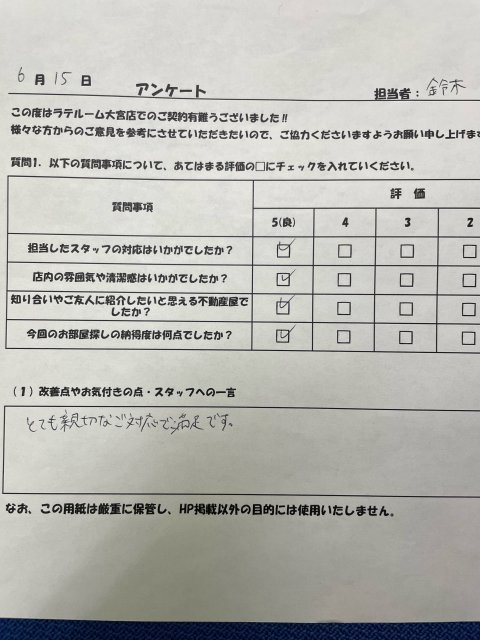 6月15日 アンケート 担当者：鈴木
この度はラテルーム大宮店でのご契約有難うございました!!
様々な方からのご意見を参考にさせていただきたいので、ご協力くださいますようお願い申し上げます
質問1. 以下の質問事項について、あてはまる評価の□にチェックを入れていください。
質問事項 評 価
5(良) 4 3 2
担当したスタッフの対応はいかがでしたか？ ☑ □ □ □
店内の雰囲気や清潔感はいかがでしたか？ ☑ □ □ □
知り合いやご友人に紹介したいと思える不動産屋で
したか？ ☑ □ □ □
今回のお部屋探しの納得度は何点でしたか？ ☑ □ □ □
（1）改善点やお気付きの点・スタッフへの一言
とても親切なご対応で満足です。
なお、この用紙は厳重に保管し、HP掲載以外の目的には使用いたしません。